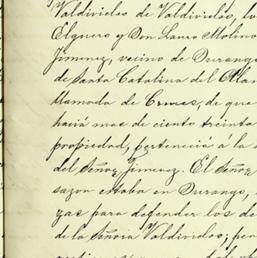 Valdivielso de Valdivielso, lo
Elguero y Don Lauro Molino
Jimenez, vecino de Durango
de Santa Catalina del Alam
llamada de Ormas, de que
hacia mas de ciento treinta
propiedad, pertenecia á la
del Señor Jimenez. El Señor
sazon estaba en Durango,
zas para defender los de
de la Señoria Valdivielso; per